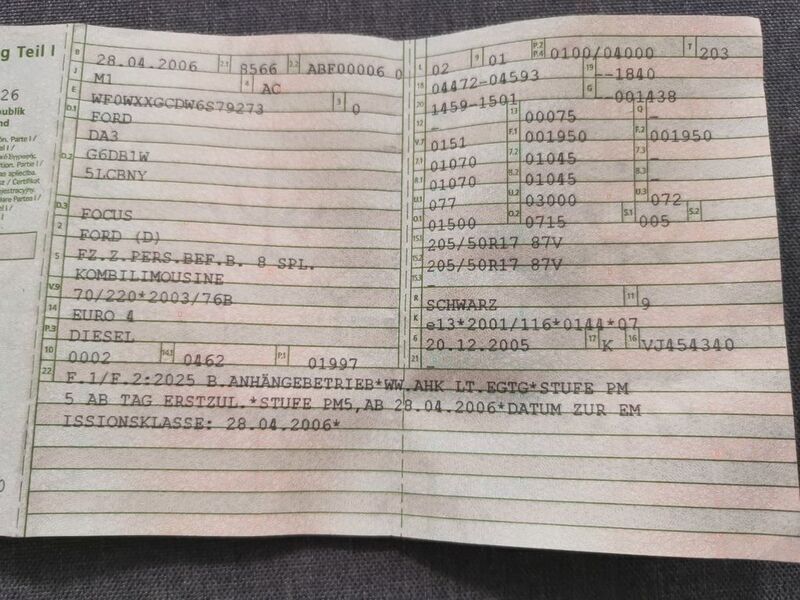 g Teil I
26
publik
nd
B 28.04.2006 2.1 8566 2.2 ABF00006 0
J M1 4 AC
E WF0WXXGCDW6S79273 3 0
D.1 FORD
DA3
D.2 G6DB1W
5LCBNY
D.3 FOCUS
2 FORD (D)
5 FZ.Z.PERS.BEF.B. 8 SPL.
KOMBILIMOUSINE
V.9 70/220*2003/76B
14 EURO 4
P.3 DIESEL
10 0002 14.1 0462 P.1 01997
L 02 9 01 P.2 P.4 0100/04000 T 203
18 04472-04593 19 --1840
20 1459-1501 G --001438
12 - 13 00075 Q -
V.7 0151 F.1 001950 F.2 001950
7.1 01070 7.2 01045 7.3 -
8.1 01070 8.2 01045 8.3 -
U.1 077 U.2 03000 U.3 072
O.1 01500 O.2 0715 S.1 005 S.2
15.1 205/50R17 87V
15.2 205/50R17 87V
15.3 -
R SCHWARZ 11 9
K e13*2001/116*0144*07
6 20.12.2005 17 K 16 VJ454340
21 -
22 F.1/F.2:2025 B.ANHÄNGEBETRIEB*WW.AHK LT.EGTG*STUFE PM
5 AB TAG ERSTZUL.*STUFE PM5,AB 28.04.2006*DATUM ZUR EM
ISSIONSKLASSE: 28.04.2006*